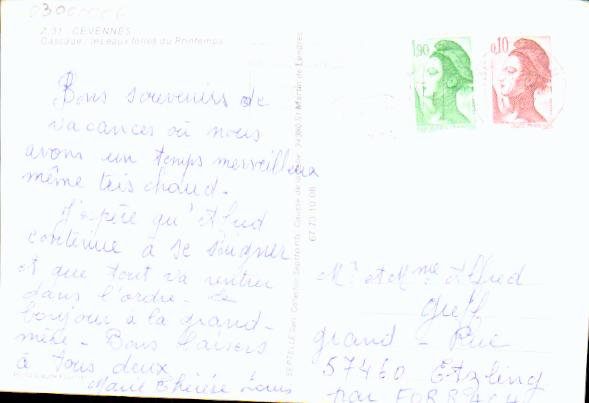 Z 31 - CEVENNES
Cascade, les eaux folles du Printemps
Bons souvenirs de
vacances où nous
avons un temps merveilleux
même très chaud.
J'espère qu'Alfred
continue à se soigner
et que tout va rentrer
dans l'ordre - Le
bonjour à la grand-
mère - Bons baisers
à tous deux
Marie Thérèse Louis
67 73 10 06
1,90
0,10
Mr et Mme Alfred
Greff
grand - Rue
57460 Etzling
par FORBACH